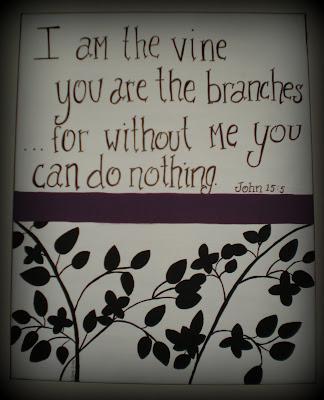 I am the vine
you are the branches
...for without me you
can do nothing.
John 15:5